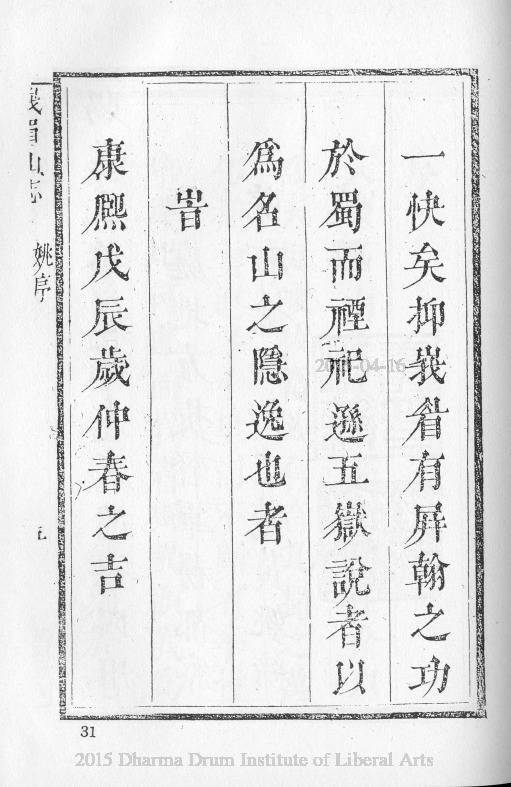 一快矣抑峩眉有屏翰之功
於蜀而禋祀遜五嶽說者以
爲名山之隱逸也者
旹
康熙戊辰歲仲春之吉
峩眉山志 姚序 五
31
2015 Dharma Drum Institute of Liberal Arts